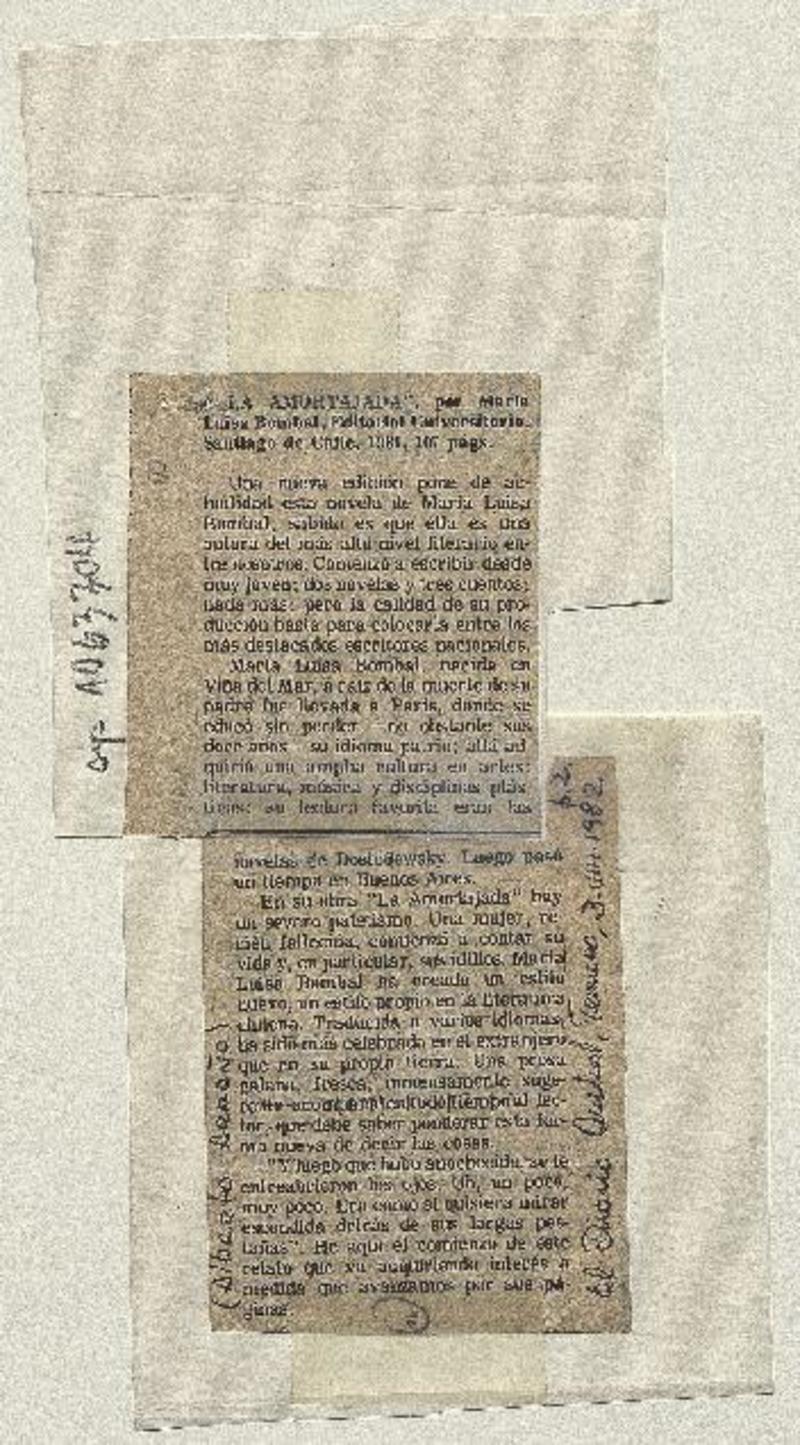 "LA AMORTAJADA", por María
Luisa Bombal, Editorial Universitaria,
Santiago de Chile, 1981, 107 págs.
Una nueva edición pone de ac-
tualidad esta novela de María Luisa
Bombal, sabido es que ella es una
autora del más alto nivel literario en-
tre nosotros. Comenzó a escribir desde
muy joven; dos novelas y tres cuentos;
nada más; pero la calidad de su pro-
ducción basta para colocarla entre los
más destacados escritores nacionales.
María Luisa Bombal, nacida en
Viña del Mar, a raíz de la muerte de su
padre fue llevada a París, donde se
educó sin perder —no obstante sus
doce años— su idioma patrio; allá ad-
quirió una amplia cultura en artes:
literatura, música y disciplinas plás-
ticas; su lectura favorita eran las
novelas de Dostoiewsky. Luego pasó
un tiempo en Buenos Aires.
En su obra "La Amortajada" hay
un severo patetismo. Una mujer, re-
cién fallecida, comienza a contar su
vida y, en particular, sus idilios. María
Luisa Bombal ha creado un estilo
nuevo, un estilo propio en la literatura
chilena. Traducida a varios idiomas,
ha sido más celebrada en el extranjero
que en su propia tierra. Una prosa
galana, fresca, inmensamente suge-
rente todo tiempo al lec-
tor, que debe saber ponderar esta for-
ma nueva de decir las cosas.
"Y luego que hubo anochecido, se le
entreabrieron los ojos. Oh, un poco,
muy poco. Era como si quisiera mirar
escondida detrás de sus largas pes-
tañas". He aquí el comienzo de este
relato que va acrecentando interés a
medida que avanzamos por sus pá-
ginas.
1063704
El Diario Austral, Temuco, 1982. p.2.